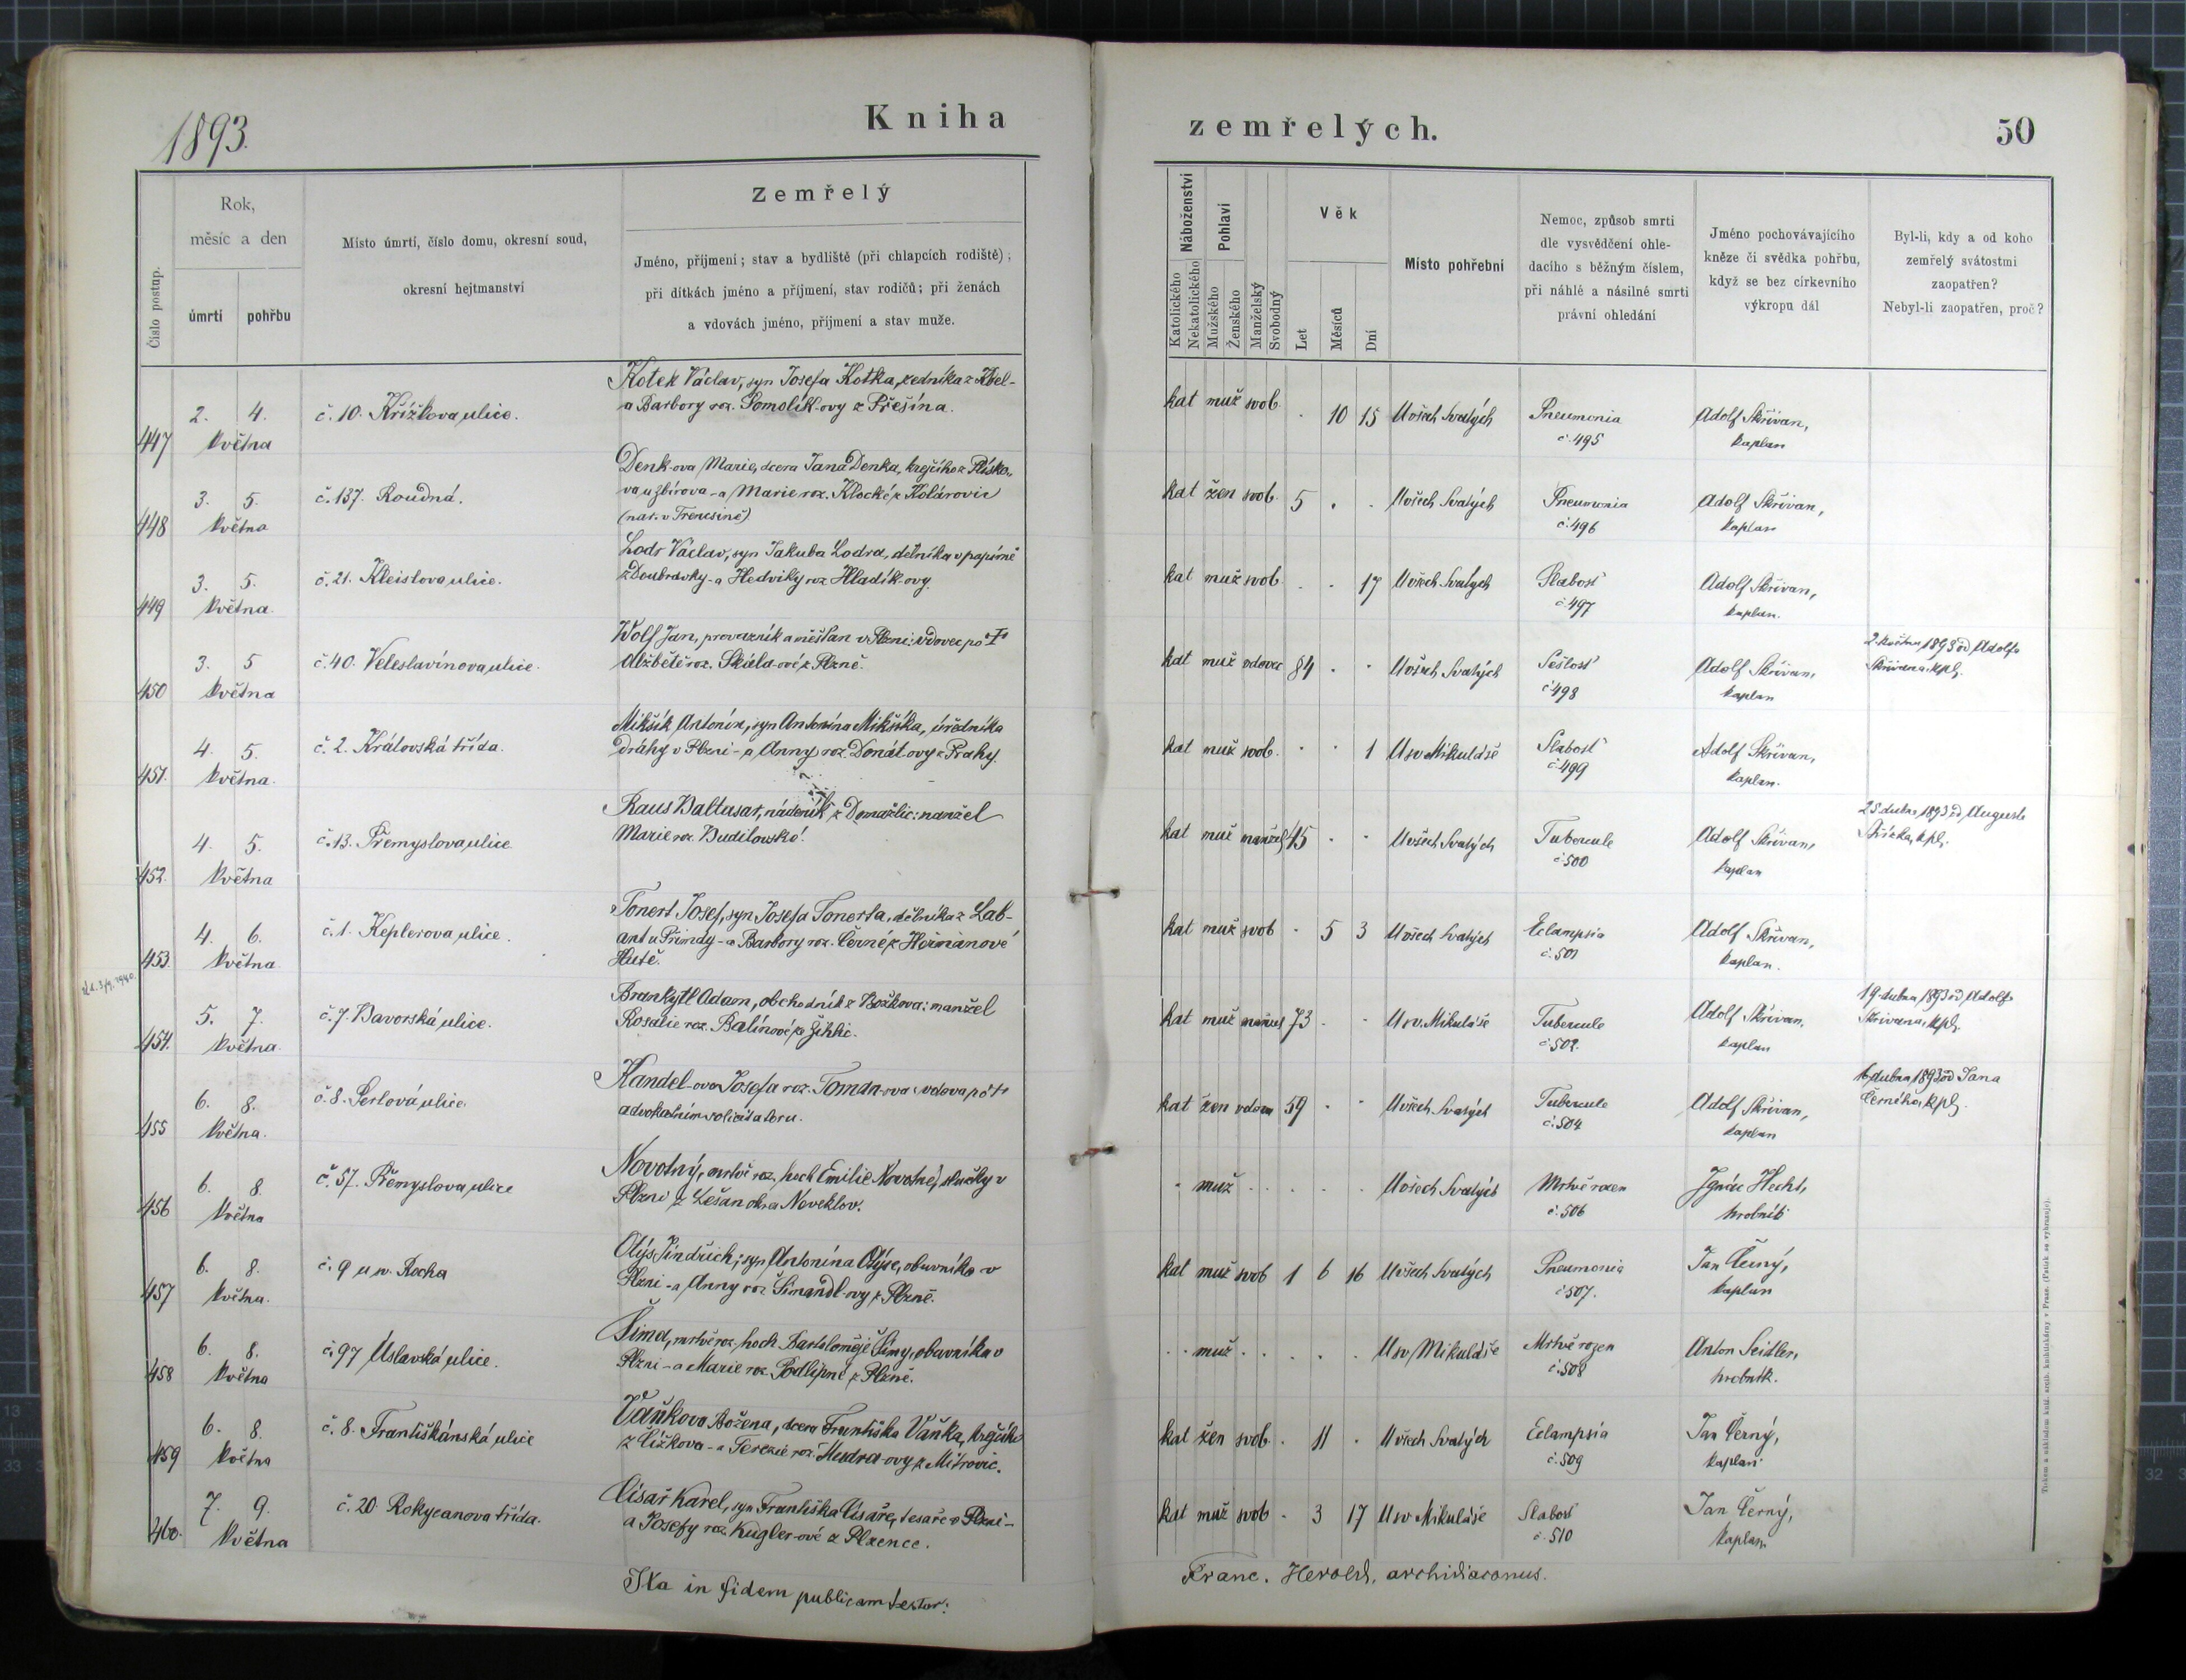 1893.
Kniha
zemřelých.
50
Číslo postup.
Rok,
měsíc a den
úmrtí
pohřbu
Místo úmrtí, číslo domu, okresní soud,
okresní hejtmanství
Zemřelý
Jméno, příjmení; stav a bydliště (při chlapcích rodiště);
při dítkách jméno a příjmení, stav rodičů; při ženách
a vdovách jméno, příjmení a stav muže.
Náboženství
Katolického
Nekatolického
Pohlaví
Mužského
Ženského
Manželský
Svobodný
Věk
Let
Měsíců
Dní
Místo pohřební
Nemoc, způsob smrti
dle vysvědčení ohle-
dacího s běžným číslem,
při náhlé a násilné smrti
právní ohledání
Jméno pochovávajícího
kněze či svědka pohřbu,
když se bez církevního
výkropu dál
Byl-li, kdy a od koho
zemřelý svátostmi
zaopatřen?
Nebyl-li zaopatřen, proč?
447 2. 4. května
č. 10. Křížkova ulice.
Kotek Václav, syn Josefa Kotka, zedníka z Kbel -
a Barbory roz. Pomolík-ovy z Přešína.
kat muž svob. . 10 15 U všech Svatých
Pneumonia
č. 495
Adolf Skřivan,
kaplan
448 3. 5. května
č. 137. Roudná.
Denk-ova Marie, dcera Jana Denka, krejčího z Plísko-
va u Zbirova - a Marie roz. Klocké z Kolárovic
(nar. v Trencsině)
kat žen svob. 5 . . U všech Svatých
Pneumonia
č. 496
Adolf Skřivan,
kaplan
449 3. 5. května.
č. 21. Kleislova ulice.
Lodr Václav, syn Jakuba Lodra, dělníka v papírně
z Doubravky - a Hedviky roz. Hladík-ovy.
kat muž svob . . 17 U všech Svatých
Slabost
č. 497
Adolf Skřivan,
kaplan.
450 3. 5 května
č. 40. Veleslavínova ulice.
Wolf Jan, provazník a měšťan v Plzni: vdovec po †
Alžbětě roz. Škúla-ové z Plzně.
kat muž vdovec 84 . . U všech Svatých
Sešlost
č. 498
Adolf Skřivan,
kaplan
2. května 1893 od Adolfa
Skřivana, kpl.
451. 4. 5. května.
č. 2. Královská třída.
Mikšík Antonín, syn Antonína Mikšíka, úředníka
dráhy v Plzni - a Anny roz. Donát-ovy z Prahy.
kat muž svob. . . 1 U sv. Mikuláše
Slabost
č. 499
Adolf Skřivan,
kaplan.
452. 4. 5. května
č. 13. Přemyslova ulice
Raus Baltasar, nádeník z Domažlic: manžel
Marie roz. Budilovské.
kat muž manžel 45 . . U všech Svatých
Tubercule
č. 500
Adolf Skřivan,
kaplan
25. dubna 1893 od Augusta
kpl.
453. 4. 6. května
č. 1. Keplerova ulice.
Tonert Josef, syn Josefa Tonerta, dělníka z Lab-
ant u Přimdy - a Barbory roz. Černé z Heřmanové
Hutě.
kat muž svob . 5 3 U všech Svatých
Eclampsia
č. 501
Adolf Skřivan,
kaplan.
454. 5. 7. května.
č. 7. Bavorská ulice.
Brankytl Adam, obchodník z Božkova: manžel
Rosalie roz. Balínové
kat muž manžel 73 . . U sv. Mikuláše
Tubercule
č. 502.
Adolf Skřivan,
kaplan
19. dubna 1893 od Adolfa
Skřivana, kpl.
455 6. 8. května.
č. 8. Perlová ulice.
Handel-ova Josefa roz. Tomda-ova: vdova po †
advokátním solicitatoru.
kat žen vdova 59 . . U všech Svatých
Tubercule
č. 504
Adolf Skřivan,
kaplan
dubna 1893 od Jana
Černého, kpl.
456 6. 8. května
č. 57. Přemyslova ulice
Novotný, mrtvě roz. hoch Emilie Novotné, služky v
Plzni z Lešan okres Noveklov.
. muž . . . . . U všech Svatých
Mrtvě rozen
č. 506
Ignác Hecht,
hrobník
457 6. 8. května.
č. 9 u sv. Rocha
Olýs Jindřich, syn Antonína Olýse, obuvníka v
Plzni - a Anny roz. Šimandl-ovy z Plzně.
kat muž svob 1 6 16 U všech Svatých
Pneumonia
č. 507.
Jan Černý,
kaplan
458 6. 8. května
č. 97 Úslavská ulice.
Šima, mrtvě roz. hoch Bartoloměje Šimy, obuvníka v
Plzni - a Marie roz. Podlipné z Plzně.
. . muž . . . . . U sv. Mikuláše
Mrtvě rozen
č. 508
Anton Seidler,
hrobník.
459 6. 8. května
č. 8. Františkánská ulice
Vaňkova Božena, dcera Františka Vaňka, krejčího
z Čížkova - a Terezie roz. Hudra-ovy z Mítrovic.
kat žen svob. . 11 . U všech Svatých
Eclampsia
č. 509
Jan Černý,
kaplan
460. 7. 9. května
č. 20 Rokycanova třída.
Císař Karel, syn Františka Císaře, tesaře v Plzni -
a Josefy roz. Kugler-ové z Plzence.
kat muž svob . 3 17 U sv. Mikuláše
Slabost
č. 510
Jan Černý,
kaplan
Ita in fidem publicam testor:
Franc. Herold, archidiaconus.